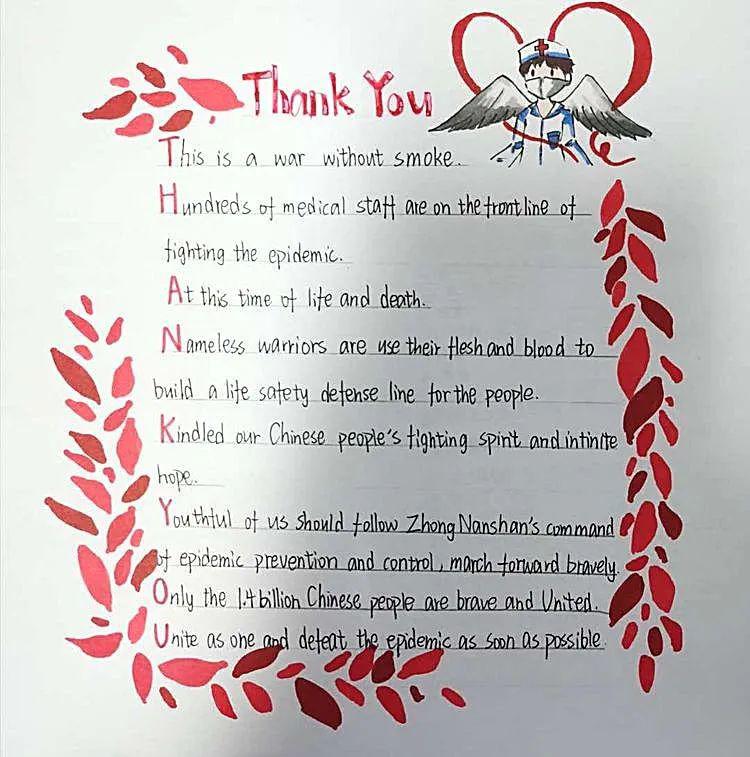 Thank You
This is a war without smoke.
Hundreds of medical staff are on the frontline of
fighting the epidemic.
At this time of life and death.
Nameless warriors are use their flesh and blood to
build a life safety defense line for the people.
Kindled our Chinese people's fighting spirit and infinite
hope.
Youthful of us should follow Zhong Nanshan's command
of epidemic prevention and control, march forward bravely.
Only the 1.4 billion Chinese people are brave and United.
Unite as one and defeat the epidemic as soon as possible.